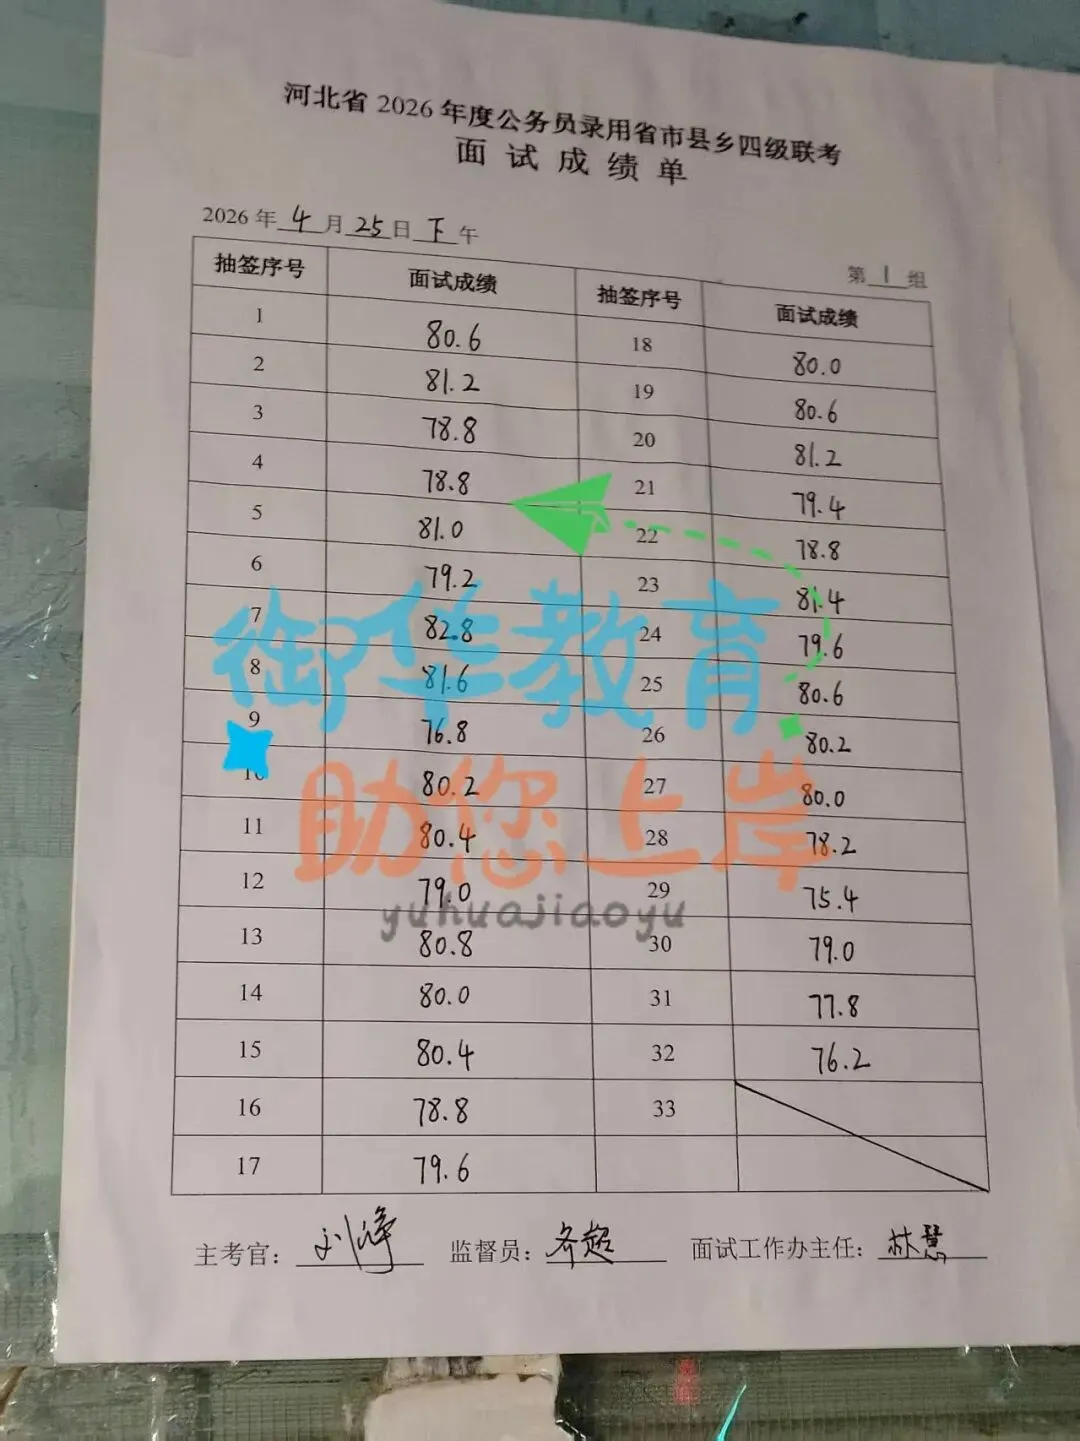 河北省 2026 年度公务员录用省市县乡四级联考
面 试 成 绩 单
2026 年 4 月 25 日 下 午
第 1 组
抽签序号 面试成绩 抽签序号 面试成绩
1 80.6 18 80.0
2 81.2 19 80.6
3 78.8 20 81.2
4 78.8 21 79.4
5 81.0 22 78.8
6 79.2 23 81.4
7 82.8 24 79.6
8 81.6 25 80.6
9 76.8 26 80.2
10 80.2 27 80.0
11 80.4 28 78.2
12 79.0 29 75.4
13 80.8 30 79.0
14 80.0 31 77.8
15 80.4 32 76.2
16 78.8 33
17 79.6
御华教育
助您上岸
yuhuajiaoyu
主考官: 刘 监督员: 齐超 面试工作办主任: 林慧